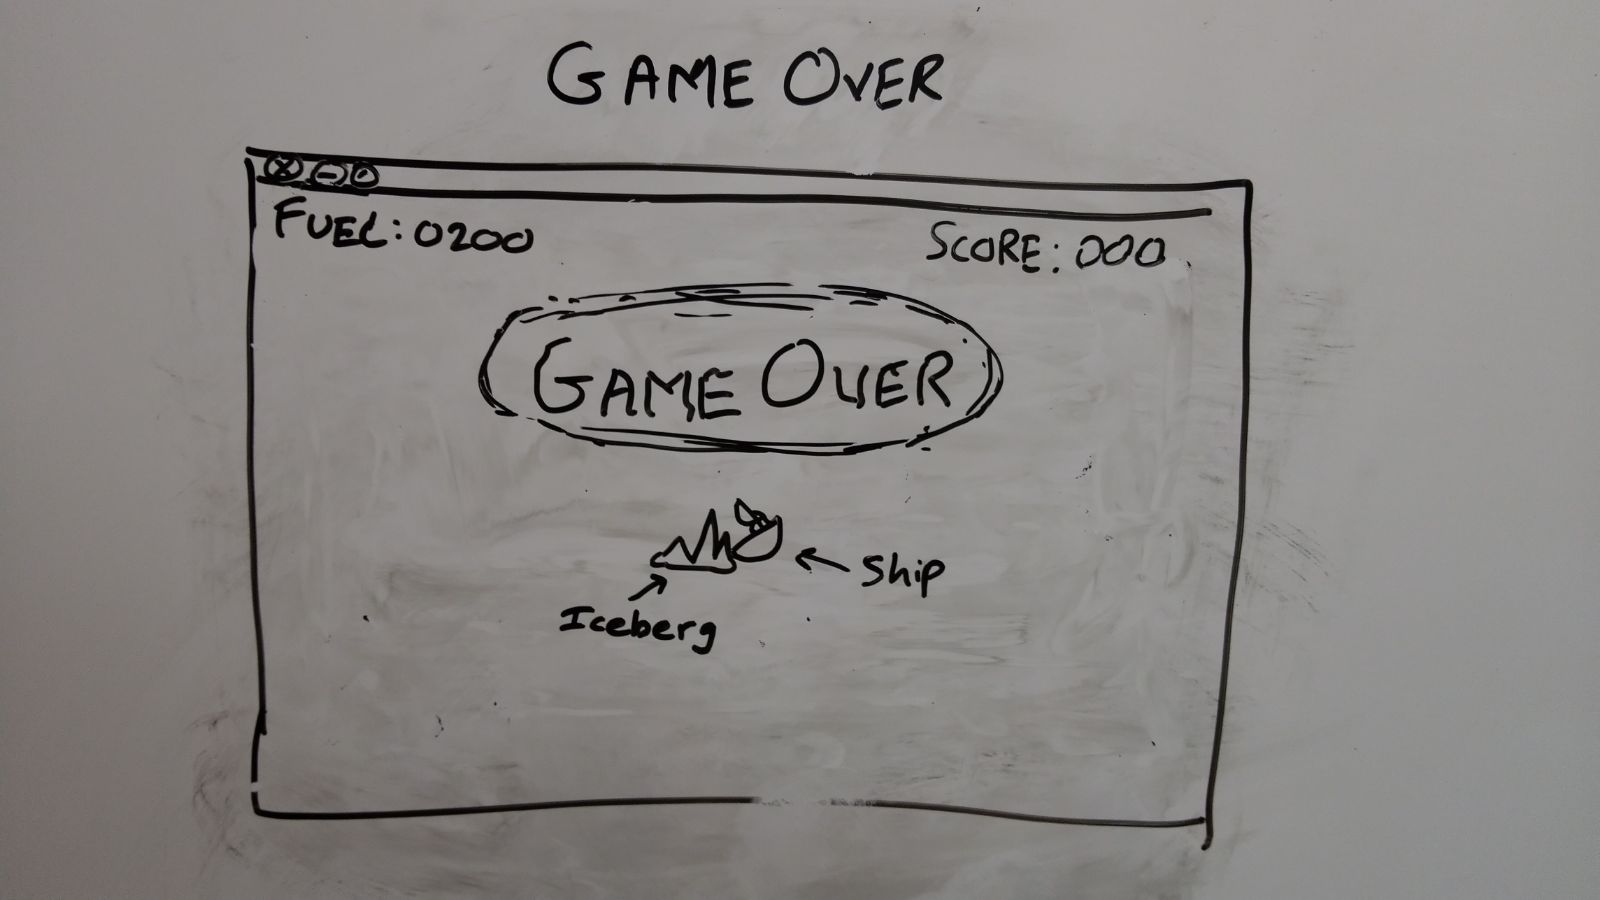 GAME OVER
FUEL: 0200
SCORE: 000
GAME OVER
Ship
Iceberg